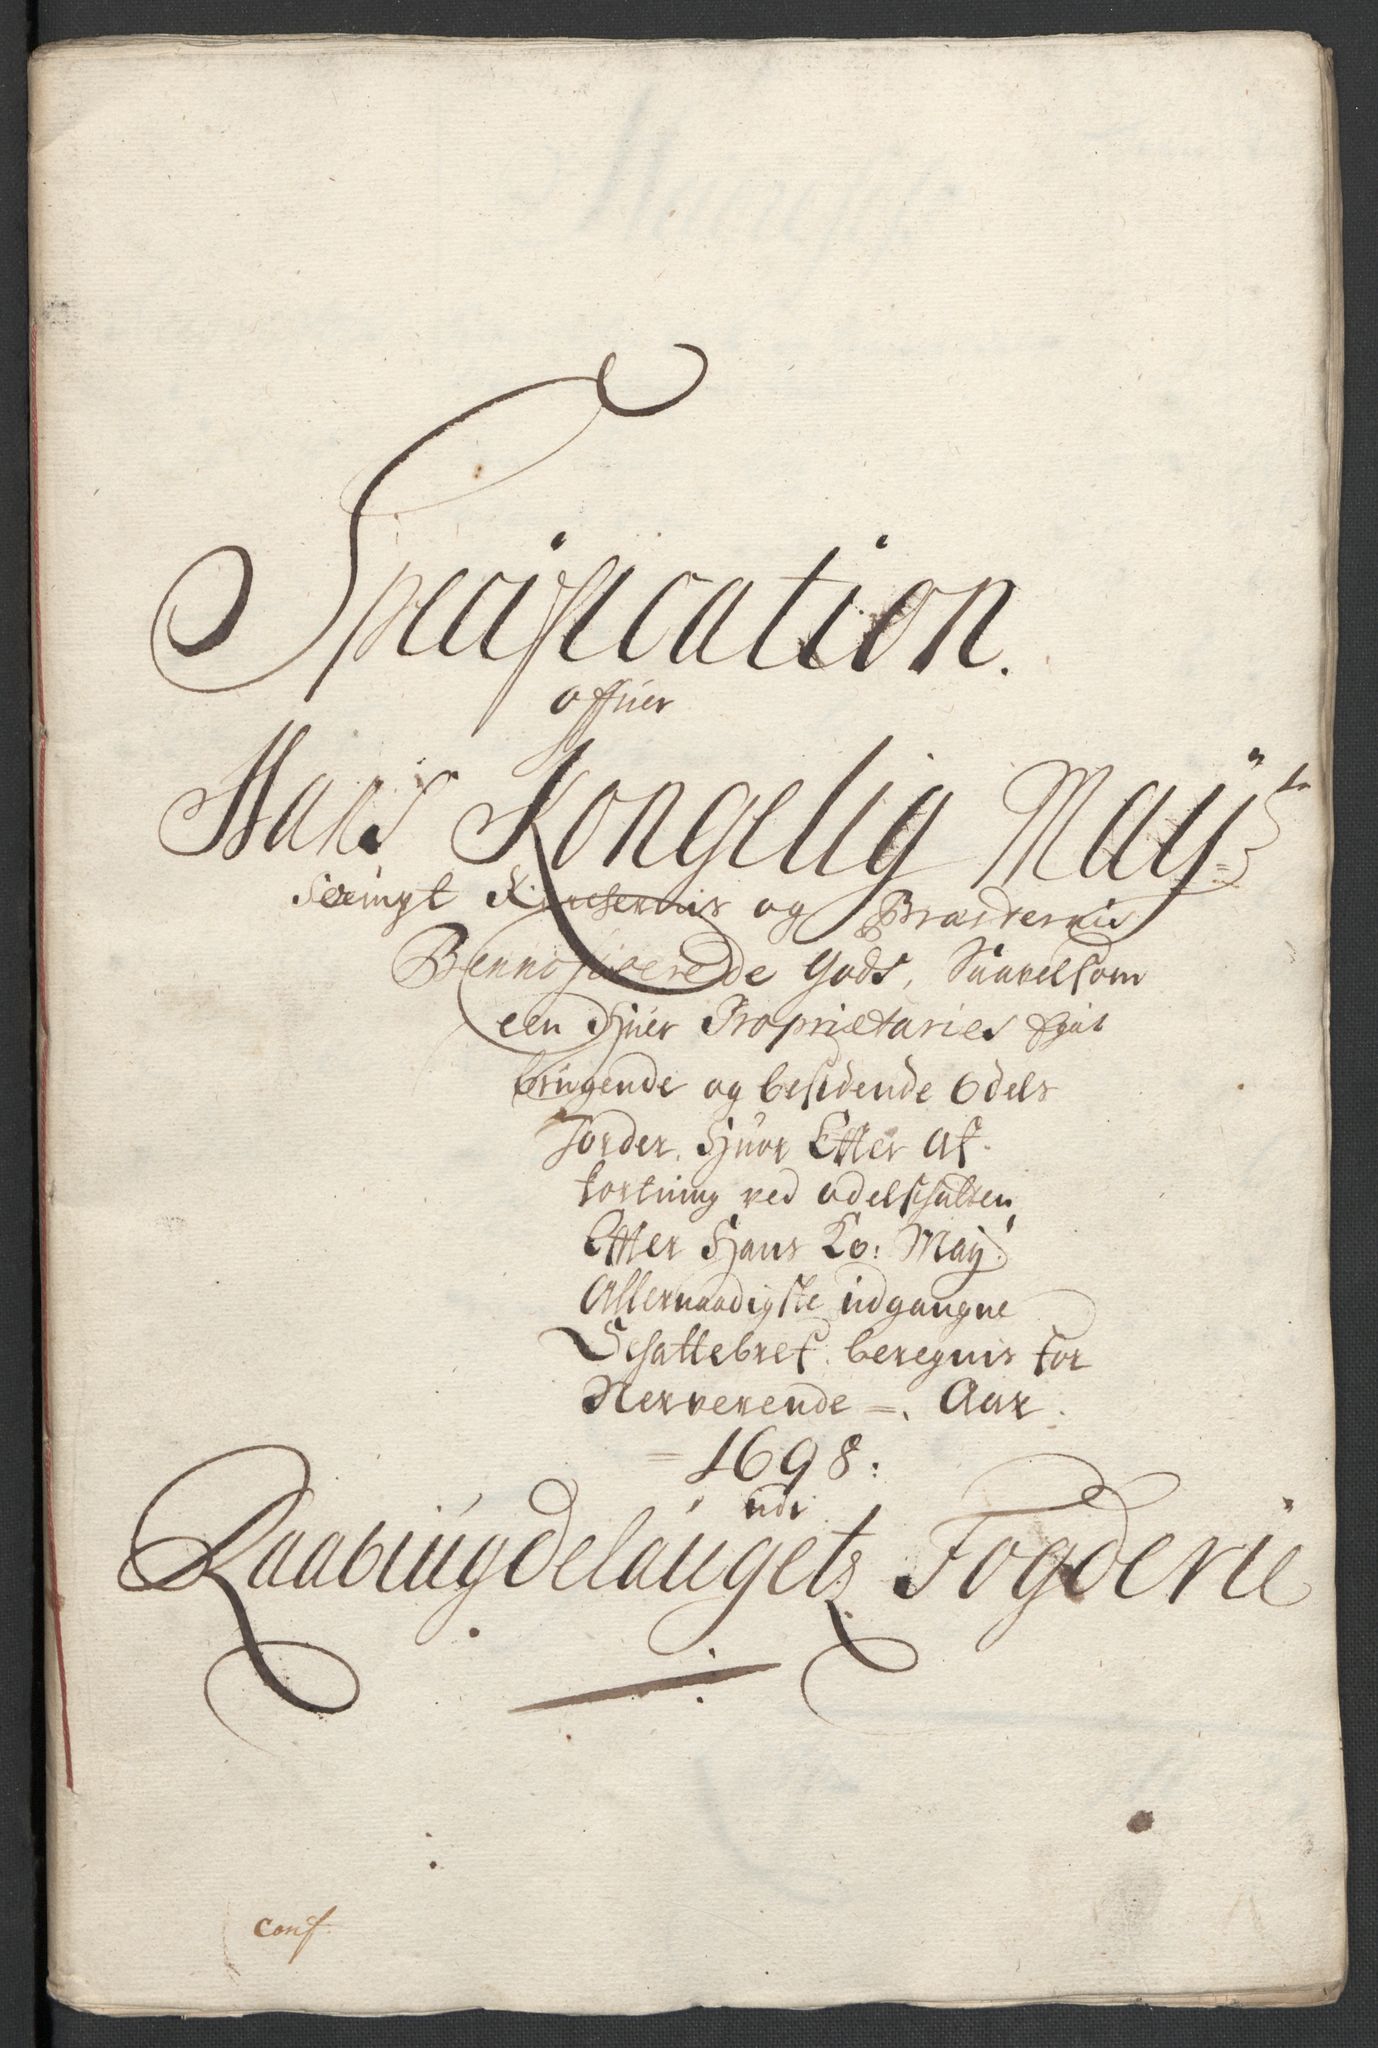 Specification.
offuer
Hans Kongelig Maÿ:ts
sampt Kirchernis og Præsternis
Benneficerede Gods, Saavelsom
een Hjuer Proprietaries Eget
brugende og besidende Odels
Jorder, Hjuor Effter af-
kortning ved odelschatten
Effter Hans Ko: Maÿ:
Allernaadigste udgangne
Schattebref beregnis for
Nerverende =. Aar.
= 1698:
udi
Raabÿugdelaugets Fogderie
Conf.